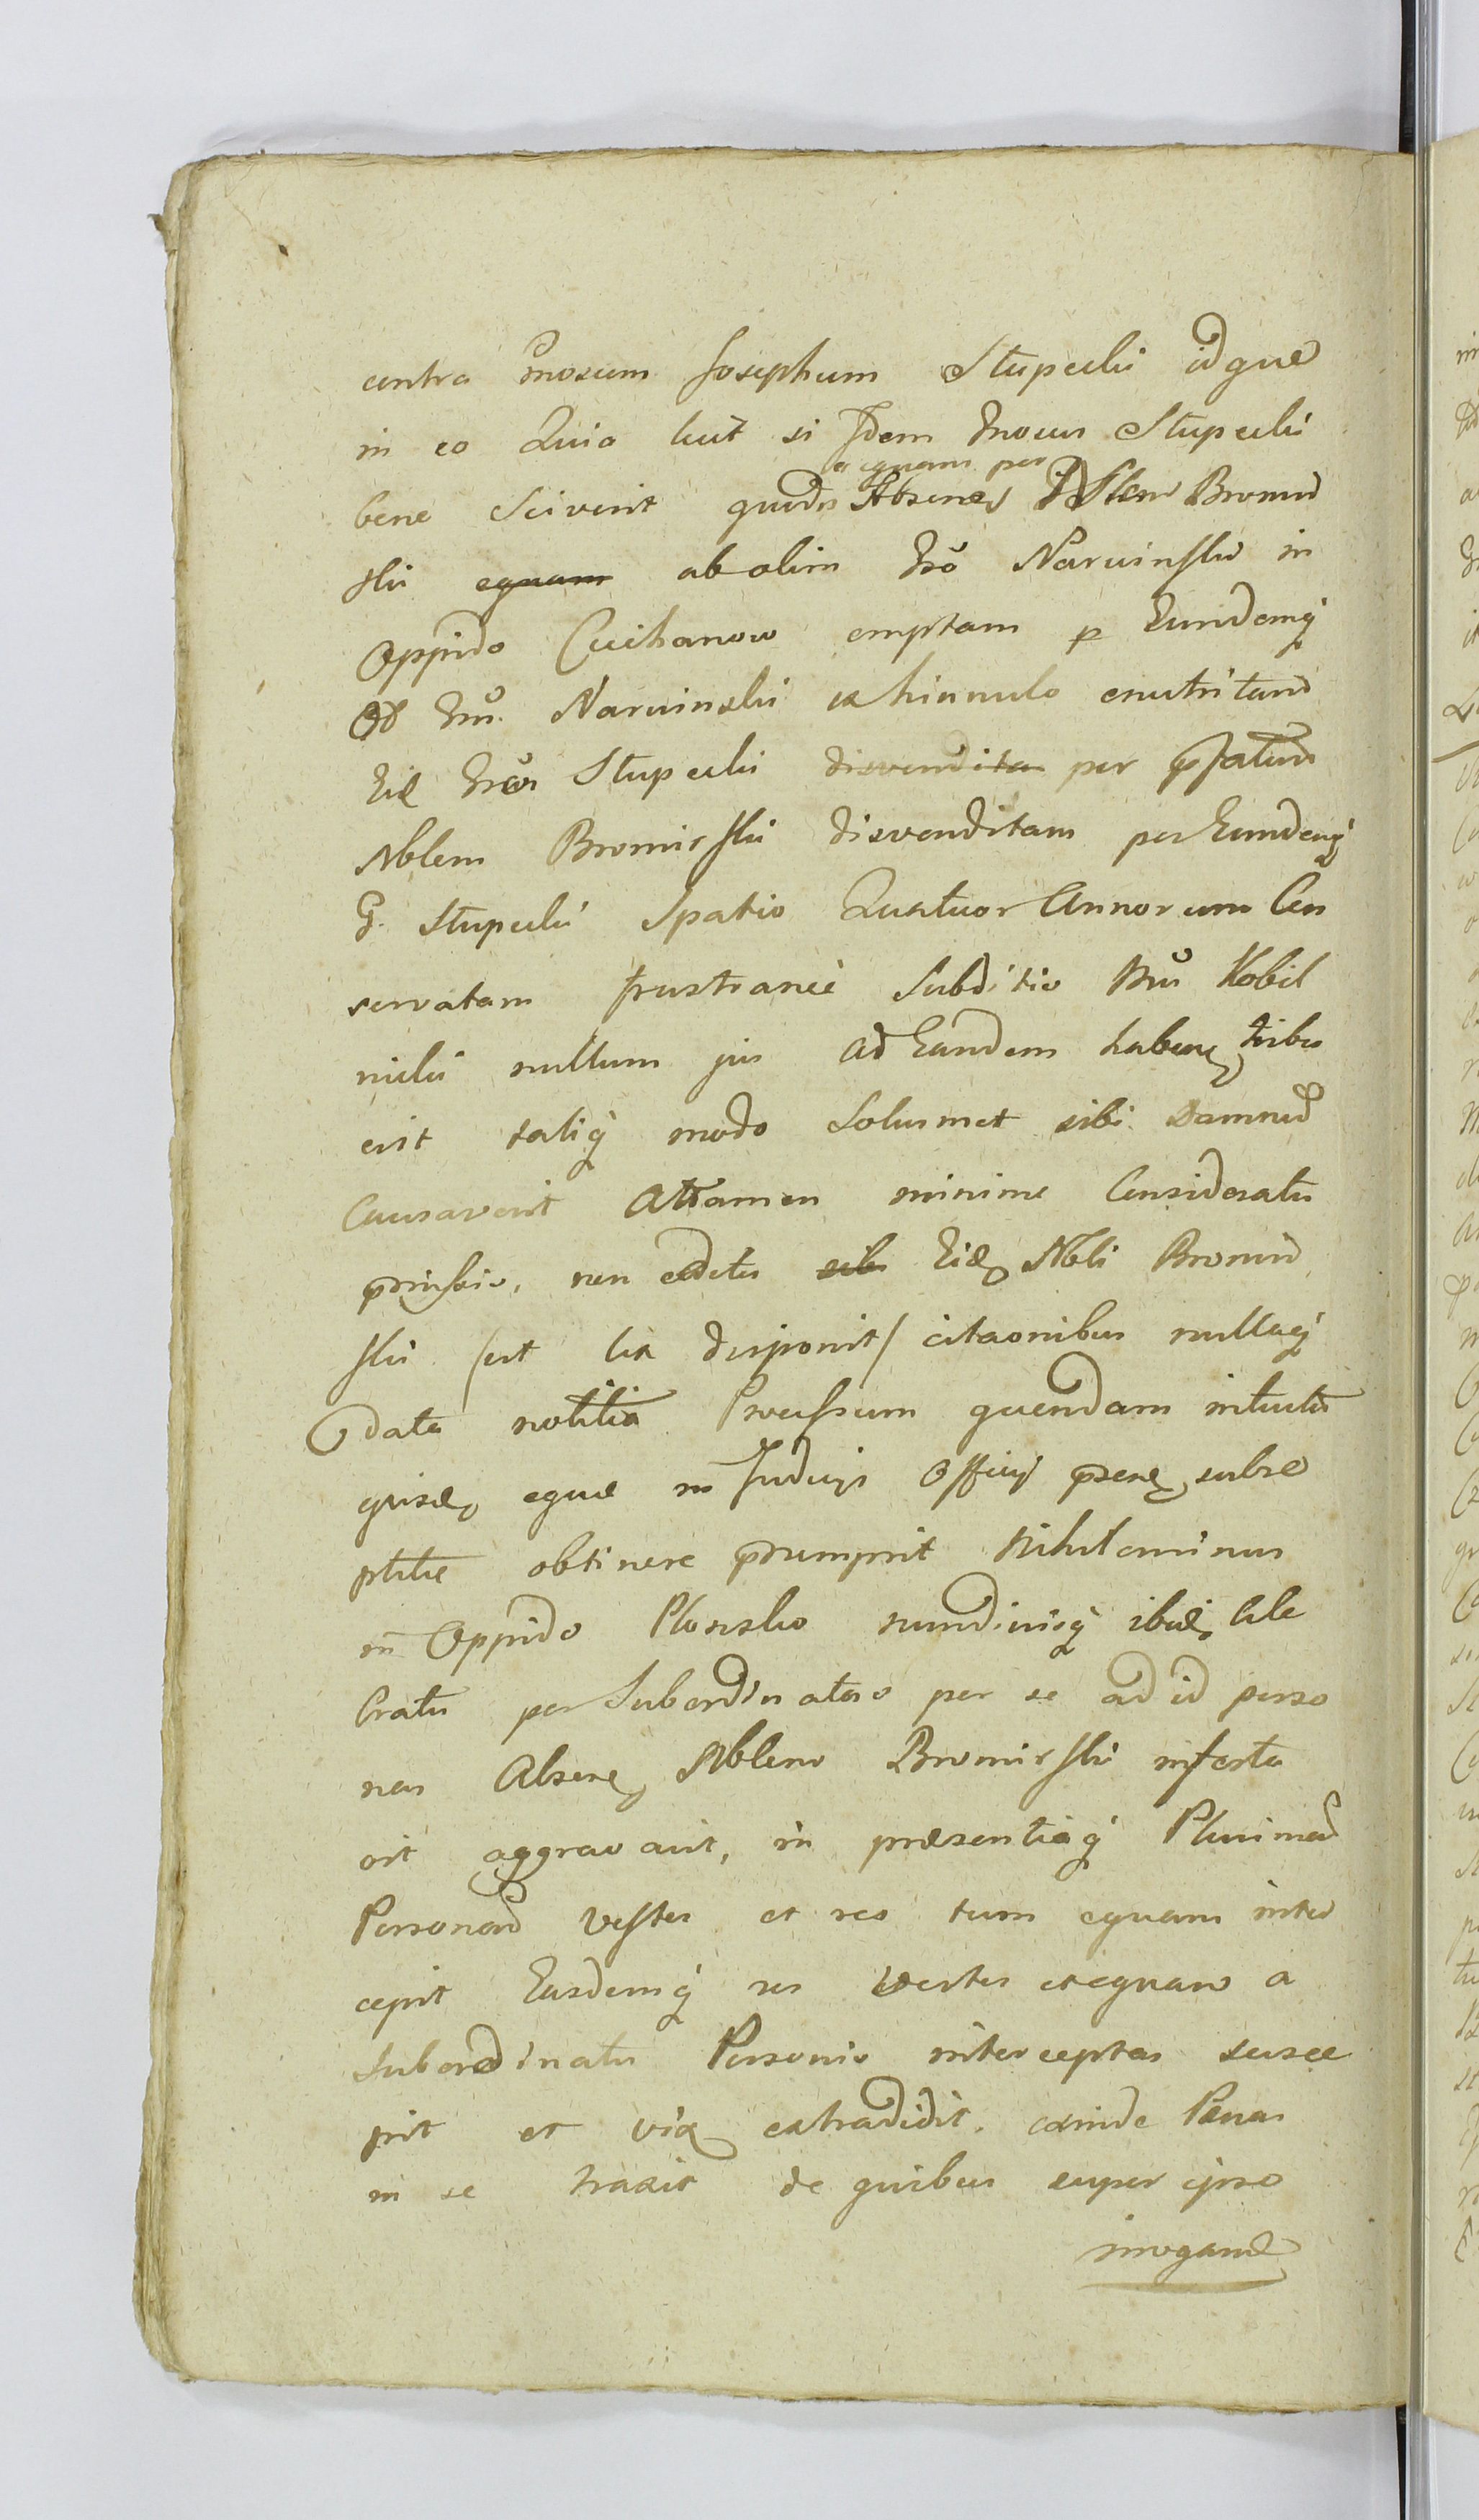 contra Gnosum Josephum Stupecki idque
in eo Quia licet si Idem Gnosus Stupecki
equam per
bene Sciverit quod Absenes Nblem Bromir
ski equam ab olim Gso Narwinski in
Oppido Ciechanow emptam p Eundemq
Ol Gsu. Narwinski ex hinnulo enutritam
Eid Gsus Stupecki disvendita per pfatum
Nblem Bromirski disvenditam per Eundemq
G. Stupecki Spatio Quatuor Annorum Con
servatam frustranee Subditio Kobil
nicki nullum jus ad Eandem haben tribu
erit taliq modo Solusmet sibi Damnum
Causaverit Attamen minime Consideratis
pmissis, non editis sibi Eid Nbli Bromir
ski /ut lex disponit/ citaonibus nullaq
data notitia Processum quendam intuitu
ejusd equae in Judicijs Officij psen subre
ptitie obtinere psumpsit Nihilominus
in Oppido Plonsko nundinisq ibid Cele
bratis per Subordinatas per se ad id perso
nas Absen Nblem Bromirski infesta
vit aggravavit, in praesentiaq Plurimar
Personar vestes et res tum equam inter
cepit Easdemq res vestes et equam a
Subordinatis Personis interceptas susce
pit et vix extradidit. exinde Paenas
in se traxit de quibus super ipso
irrogand